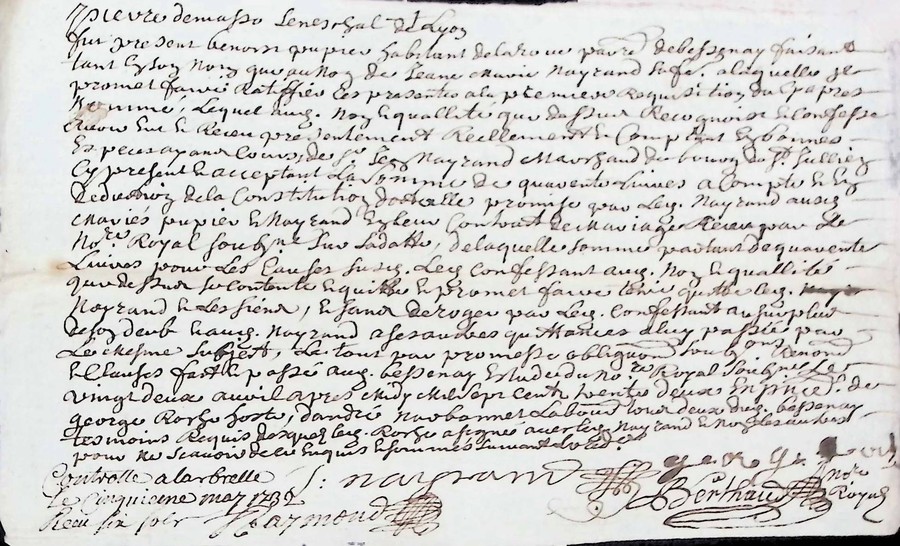 pierre demasso seneschal de Lyon
fut present benoist pupier habitant de la roue parre de bessenay faisant
tant en son Nom que au Nom de Jeane Marie Nayrand sa fe. a laquelle
promet faire Ratiffier ces presentes a la premiere Requisition
Nommé, Lequel aud. Nom et quallité que dessus Recognoist et Confesse
avoir eut et Receu presentement Reellement et Comptant en bonnes
Especes ayant Cours, de Nayrand Marchand du bourg de St Jullien
Cy present et acceptant La Somme de quarente Livres a Compte et en
Deduction de la Constitution promise par Led. Nayrand ausd.
Mariés pupier et Nayrand en leur Contrat de Mariage Receu par le
Nore. Royal soubzne Sur Sa datte, de laquelle somme partant de quarente
Livres pour Les Causes susd. Led. Confessant aud. Nom et quallité
que dessus se contente et quitte et promet faire tenir quitte led.
Nayrand et Les siens, et sans deroger par Led. Confessant au surplus
de son deub et aud. Nayrand a ses autres quittances a luy passée par
Le Mesme Subject, Le tout par promesse obligaon soubzons Renonons
et Clauses fait et passé aud. bessenay Estude du Nore Royal soubzne Le
vingt deux avril apres Midy Mil Sept Cent trente deux En pnce. de
george Roche hoste, d'andré Narbonnet Laboureur tous deux dud. bessenay
tesmoins Requis desquels led. Roche a signé avec led. Nayrand et Non les autres
pour ne Scavoir de ce Enquis et sommés suivant Lord.
Controllé a larbrelle
Le Cinquieme may 1732
Receu six sols Raymond
J: nayrand
george roch
Berthaud nore
Royal